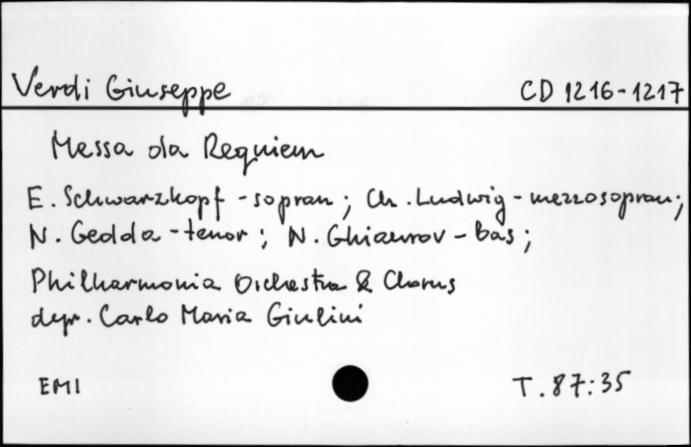 Verdi Giuseppe CD 1216-1217
Messa da Requiem
E. Schwarzkopf - sopran; Ch. Ludwig - mezzosopran;
N. Gedda - tenor; N. Ghiaurov - bas;
Philharmonia Orchestra & Chorus
dyr. Carlo Maria Giulini
EMI T. 87:35